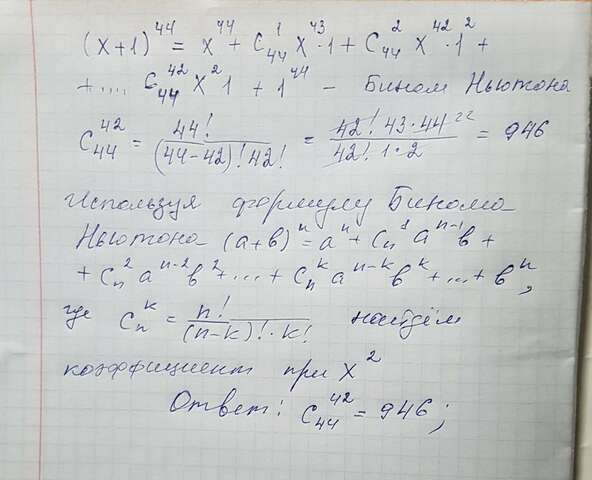 (x+1)⁴⁴ = x⁴⁴ + C₄₄¹ x⁴³·1 + C₄₄² x⁴²·1² +
+.... C₄₄⁴² x² 1 + 1⁴⁴ – Бином Ньютона
C₄₄⁴² = 44! / (44-42)! 42! = 42! 43·44 22 / 42! 1·2 = 946
Используя формулу Бинома
Ньютона (a+b)ⁿ = aⁿ + Cₙ¹ aⁿ⁻¹b +
+ Cₙ² aⁿ⁻²b² +...+ Cₙᵏ aⁿ⁻ᵏbᵏ +...+ bⁿ,
где Cₙᵏ = n! / (n-k)!·k! найдём
коэффициент при x²
Ответ: C₄₄⁴² = 946;